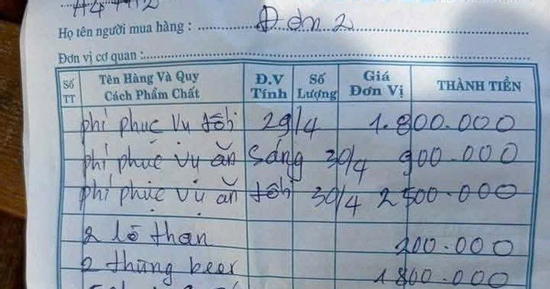 Họ tên người mua hàng : Đơn 2
Đơn vị cơ quan :
Số TT Tên Hàng Và Quy Cách Phẩm Chất Đ.V Tính Số Lượng Giá Đơn Vị THÀNH TIỀN
phí phục vụ tối 29/4 1.800.000
phí phục vụ ăn sáng 30/4 900.000
phí phục vụ ăn tối 30/4 2500.000
2 lò than 200.000
2 thùng beer 1.800.000